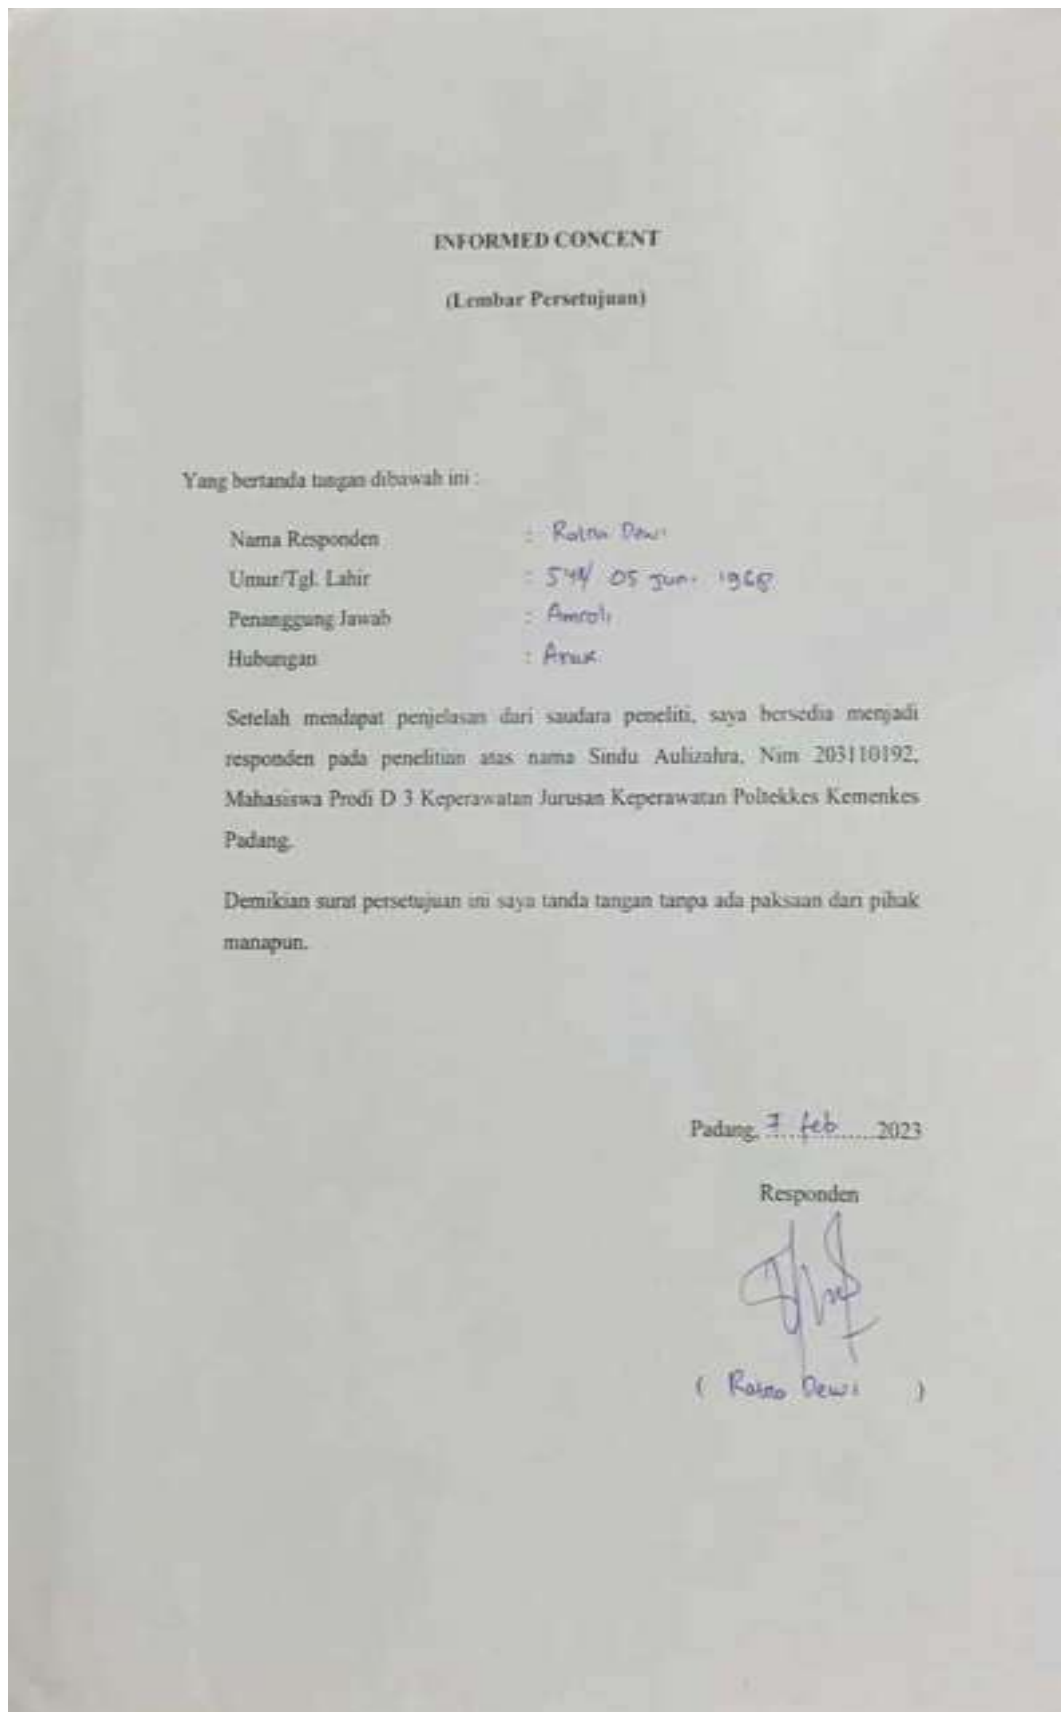 INFORMED CONCENT
(Lembar Persetujuan)
Yang bertanda tangan dibawah ini :
Nama Responden : Ratna Dewi
Umur/Tgl. Lahir : 05 Juni 1968
Penanggung Jawab :
Hubungan : Anak
Setelah mendapat penjelasan dari saudara peneliti, saya bersedia menjadi
responden pada penelitian atas nama Sindu Aulizahra, Nim 203110192,
Mahasiswa Prodi D 3 Keperawatan Jurusan Keperawatan Poltekkes Kemenkes
Padang.
Demikian surat persetujuan ini saya tanda tangan tanpa ada paksaan dari pihak
manapun.
Padang, 7 feb 2023
Responden
( Ratna Dewi )